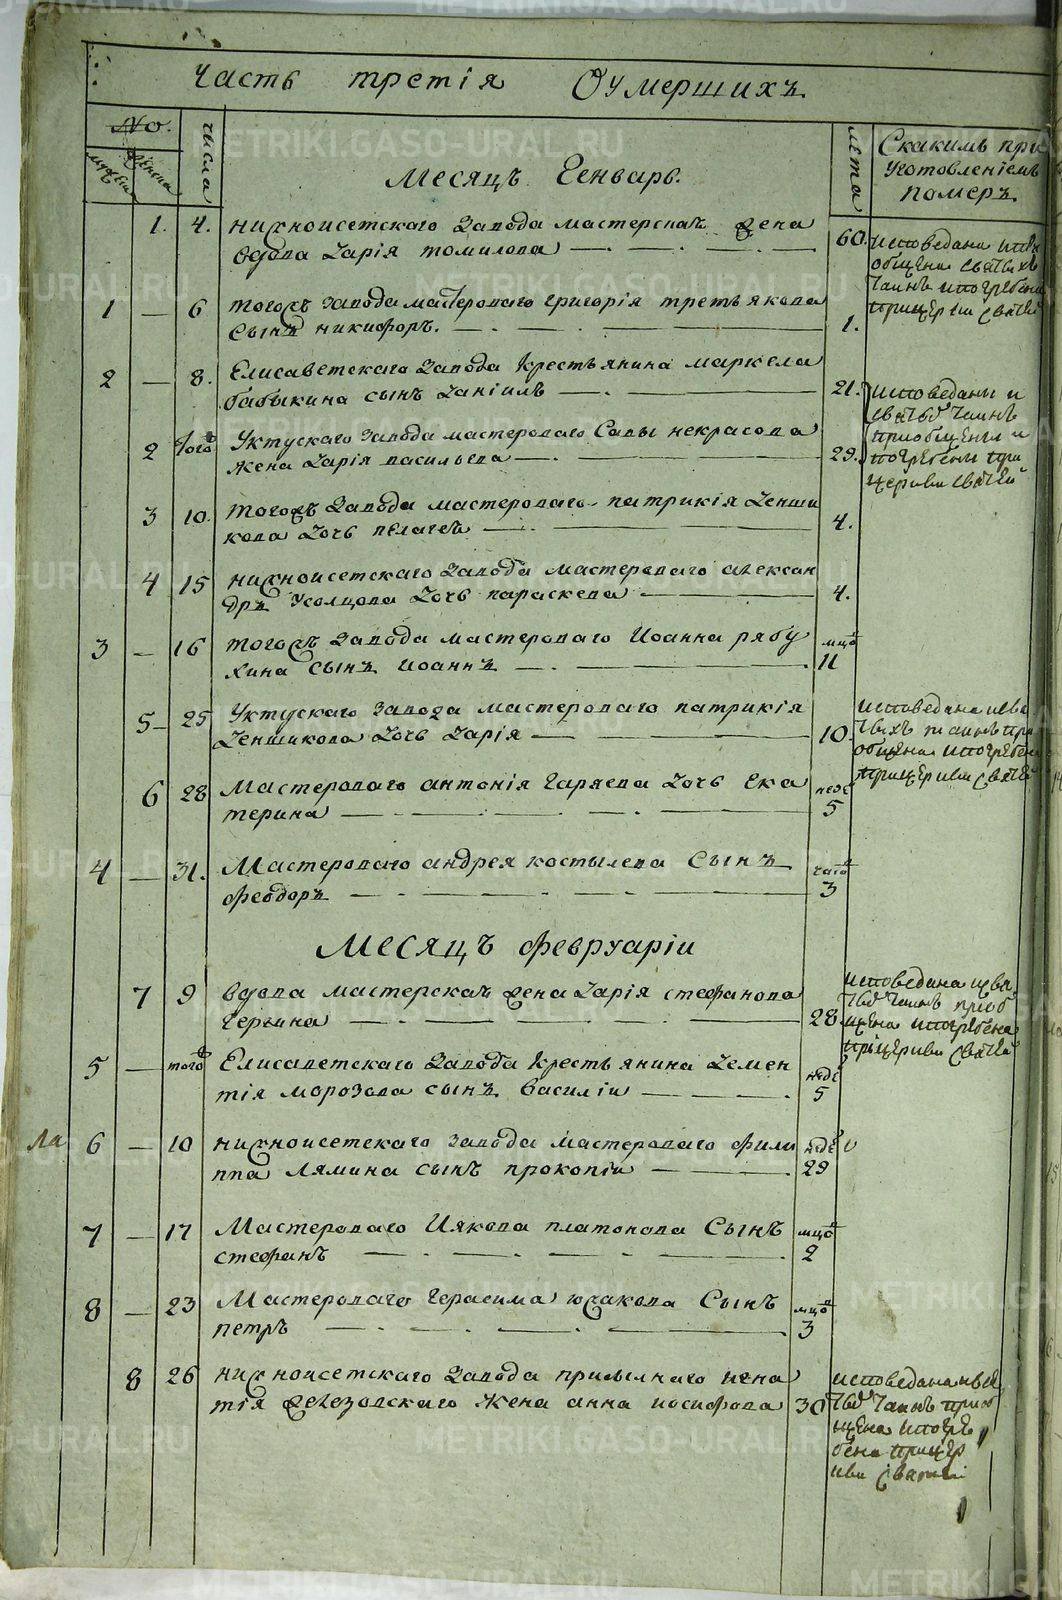 Часть третія Оумершихъ
No.
мужеска
женска
числа
Месяцъ Генварь.
лета
Скакимъ при
уготовленіемъ
померъ.
1. 4. нижноисетскаго завода мастерская жена
вдова дарія томилова 60.
исповедана и
общена святыхъ
таинъ и погребена
при церкви святей
1 — 6 тогожъ завода мастероваго григорія третьякова
сынъ никифоръ. 1.
2 — 8. Елисаветскаго завода крестьянина маркела
бабыкина сынъ даніилъ 21.
исповеданы и
святыхъ таинъ
приобщены и
погребены при
церкви святей
2 того Уктускаго завода мастероваго Савы некрасова
жена дарія васильева 29.
3 10. тогожъ завода мастероваго патрикія денщи
кова дочь пелагея 4.
4 15 нижноисетскаго завода мастероваго алексан
дра усолцова дочь параскева 4.
3 — 16 тогожъ завода мастероваго Иоанна рябу
хина сынъ иоаннъ мцов 11
5 — 25 Уктускаго завода мастероваго патрикія
денщикова дочь дарія 10.
исповедана исвя
тыхъ таинъ при
общена ипогребена
прицеркви святей
6 28 Мастероваго антонія гаряева дочь ека
терина неде 5
4 — 31. Мастероваго андрея костылева сынъ
феодоръ часов 3
Месяцъ февруаріи
7 9 вдова мастерская жена дарія стефанова
гергина 28
исповедана исвя
таинъ приоб
щена ипогребена
прицеркви святей
5 — того Елисаветскаго завода крестьянина демен
тія морозова сынъ василіи неде 5
Ла 6 — 10 нижноисетскаго завода мастероваго фили
ппа лямина сынъ прокопіи неде 29
7 — 17 Мастероваго Иякова платонова Сынъ
стефанъ мцов 2
8 — 23 Мастероваго герасима южакова Сынъ
петръ мцов 3
8 26 нижноисетскаго завода присылнаго игна
тія железовскаго жена анна иосифова 30
исповедана исвя
таинъ приоб
щена ипогре
бена прицер
кви святей
METRIKI.GASO-URAL.RU